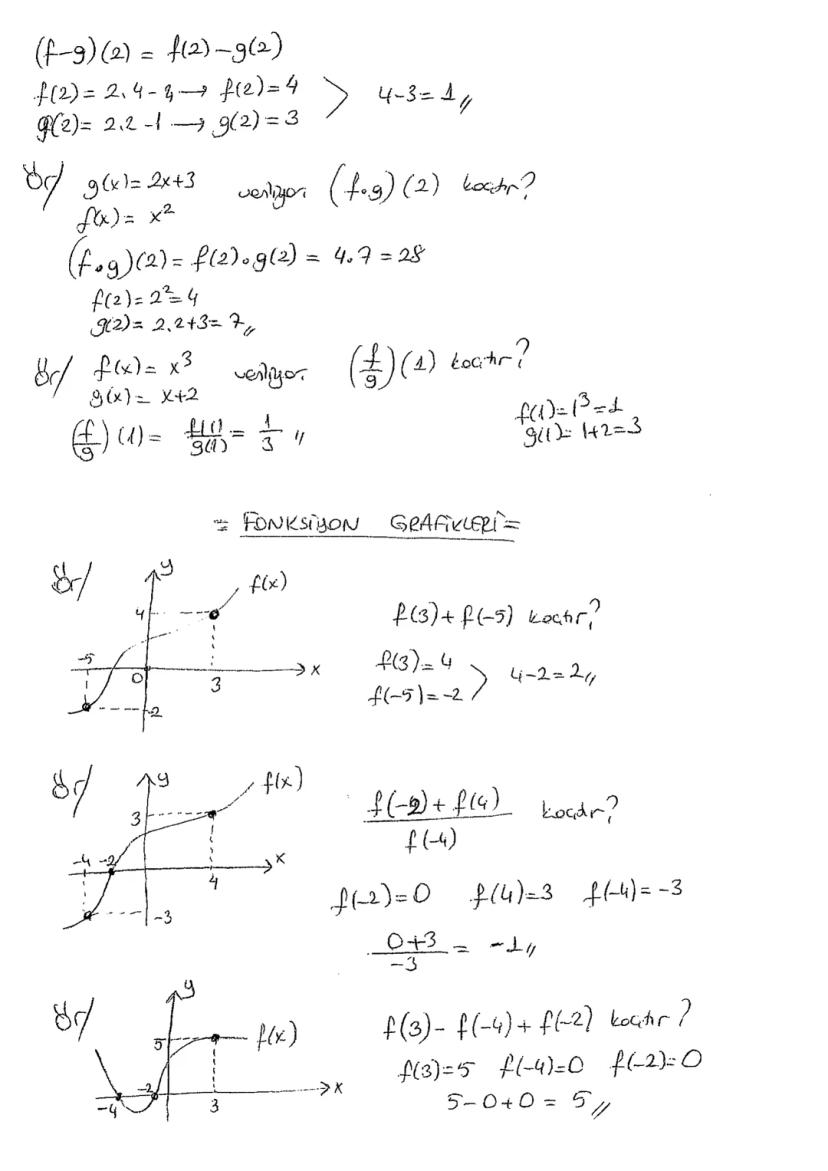 (f-g)(2) = f(2)-g(2)
f(2)= 2.4-4 → f(2)=4
g(2)= 2.2-1 → g(2)=3 > 4-3=1//
Ör/ g(x)=2x+3 veriliyor. (f.g)(2) kaçtır?
f(x)= x²
(f.g)(2)= f(2).g(2) = 4.7=28
f(2)=2²=4
g(2)= 2.2+3= 7//
Ör/ f(x)= x³ veriliyor. (f/g)(1) kaçtır?
g(x)= x+2
f(1)=1³=1
g(1)= 1+2=3
(f/g)(1)= f(1)/g(1) = 1/3 //
= FONKSİYON GRAFİKLERİ =
Ör/ y f(x)
4
-5 0 3 x
-2
f(3)+f(-5) kaçtır?
f(3)=4
f(-5)=-2 > 4-2=2//
Ör/ y f(x)
3
-4 -2 4 x
-3
f(-2)+f(4) / f(-4) kaçtır?
f(-2)=0 f(4)=3 f(-4)=-3
0+3 / -3 = -1//
Ör/ y
5 f(x)
-4 -2 3 x
f(3)- f(-4)+ f(-2) kaçtır?
f(3)=5 f(-4)=0 f(-2)=0
5-0+0= 5//